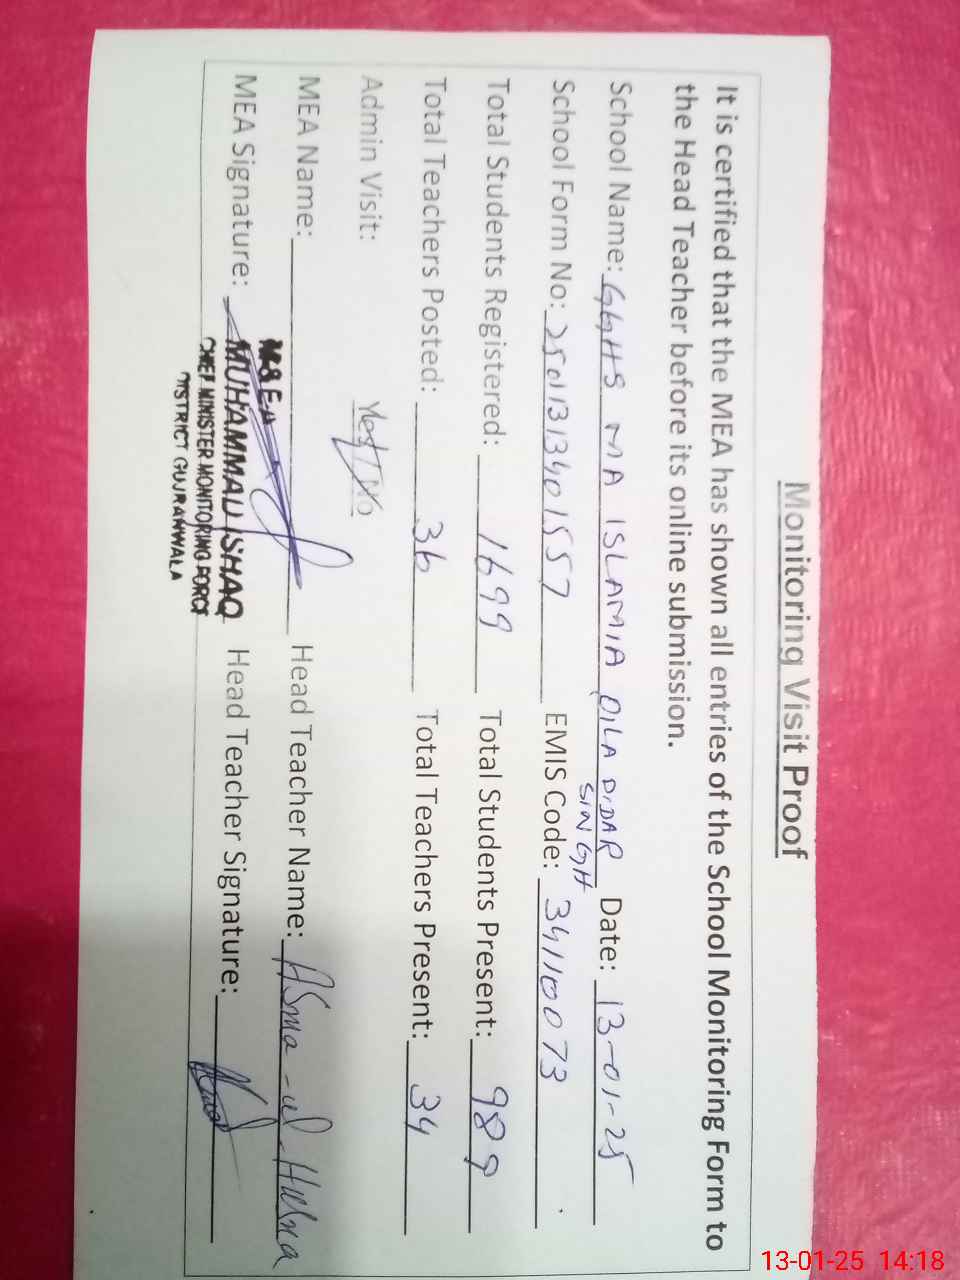 Monitoring Visit Proof
It is certified that the MEA has shown all entries of the School Monitoring Form to
the Head Teacher before its online submission.
School Name: GGHS MA ISLAMIA QILA DIDAR SINGH Date: 13-01-25
School Form No: 25011313401557 EMIS Code: 34110073
Total Students Registered: 1699 Total Students Present: 989
Total Teachers Posted: 36 Total Teachers Present: 34
Admin Visit: Yes / No
MEA Name: Head Teacher Name: Asma-ul-Husna
MEA Signature: Head Teacher Signature:
M&EA
MUHAMMAD ISHAQ
CHIEF MINISTER MONITORING FORCE
DISTRICT GUJRANWALA
13-01-25 14:18